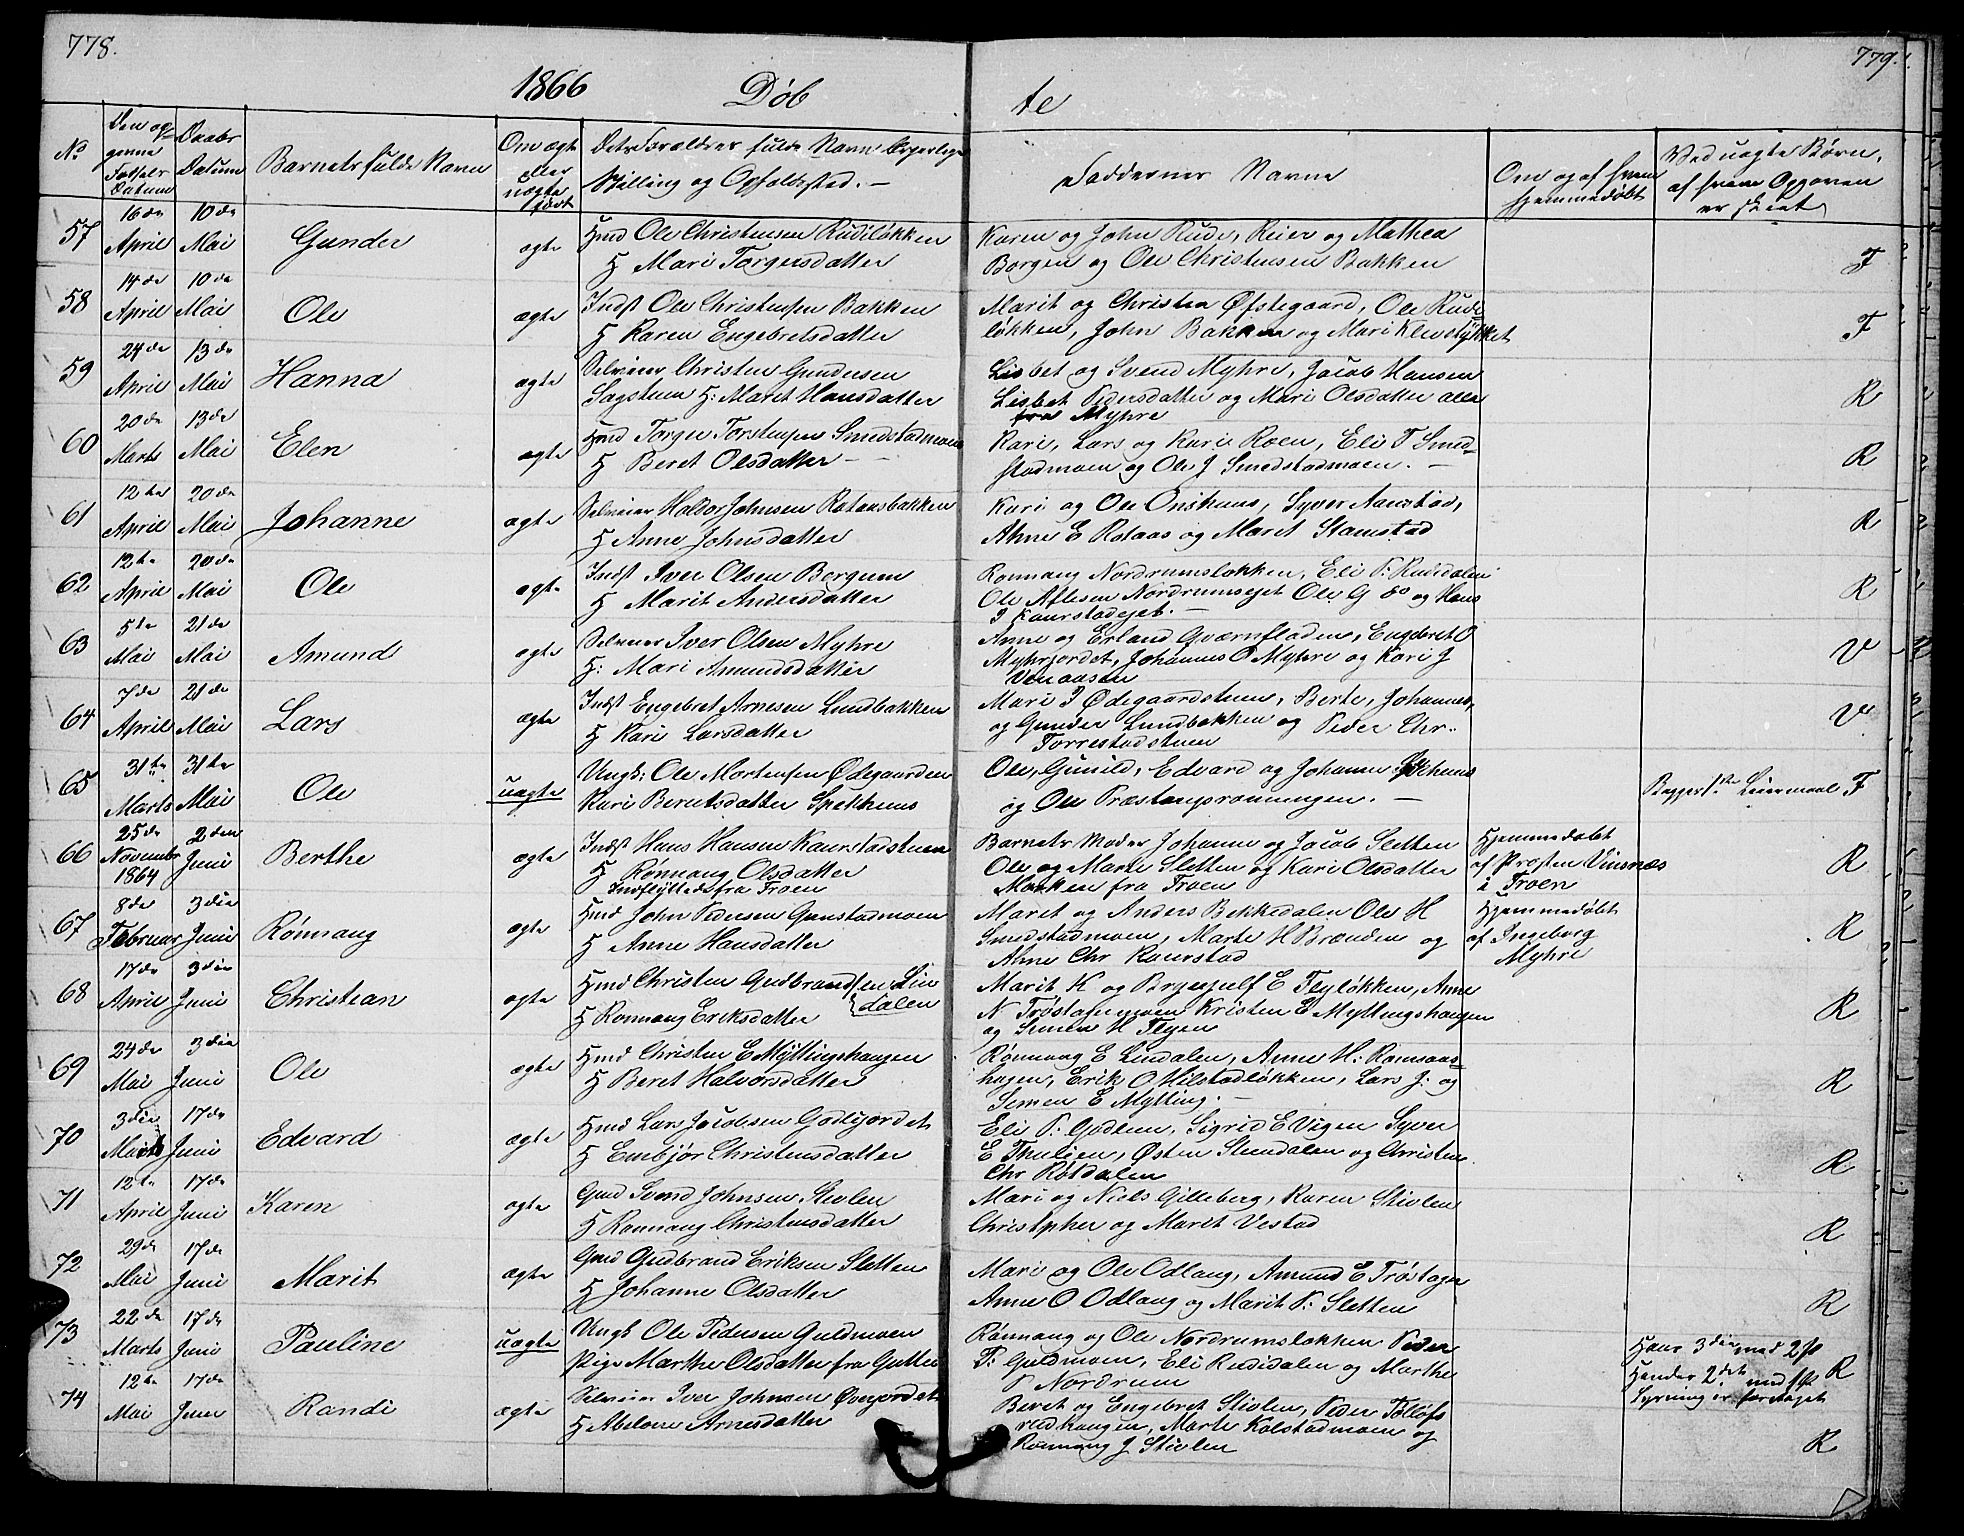 778.
779.
1866 Døb
te
No
Den op-
givne
Fødsels
Datum
Daabs
Datum
Barnets fulde Navn
Om ægte
eller
uægte
født
Dets Forældres fulde Navn Borgerlige
Stilling og Opholdssted. —
Faddernes Navne
Om og af hvem
hjemmedøbt
Ved uægte Børn,
af hvem Opgaven
er skeet
57 16de April 10de Mai Gunder ægte
Hmd Ole Christensen Rudiløkken
H Mari Torgersdatter
Karen og John Rude, Reier og Mathea
Borgen og Ole Christensen Bakken
F
58 14de April 10de Mai Ole ægte
Indst Ole Christensen Bakken
H Karen Engebretsdatter
Marit og Christen Øfstegaard, Ole Rude
løkken, John Bakken og Mari Klevstykket
F
59 24de April 13de Mai Hanna ægte
Selveier Christen Gundersen
Sagstuen H: Marit Hansdatter
Lisbet og Svend Myhre, Jacob Hansen
Lisbet Pedersdatter og Mari Olsdatter alle
fra Myhre
R
60 20de Marts 13de Mai Elen ægte
Hmd Torger Torstensen Smedstadmoen
H Beret Olsdatter —
Kari, Lars og Kari Roen, Eli T Smed-
stadmoen og Ole J Smedstadmoen. —
R
61 12te April 20de Mai Johanne ægte
Selveier Halvor Johnsen Rotaasbakken
H Anne Johnsdatter
Kari og Ole Onshuus, Syver Aanstad,
Anne E Rotaas og Marit Stamstad
R
62 12te April 20de Mai Ole ægte
Indst Iver Olsen Borgeren
H Marit Andersdatter
Rønnaug Nordrumsløkken, Eli P. Rudidalen
Ole Aslesen Nordrumsejet Ole G do og Hans
J Kaurstadejet. —
R
63 5te Mai 21de Mai Amund ægte
Selveier Iver Olsen Myhre
H: Mari Amundsdatter
Anne og Erland Qværnfladen, Engebret O
Myhrjordet, Johannes O Myhre og Kari J
V
64 7de April 21de Mai Lars ægte
Indst Engebret Arnesen Lundbakken
H Kari Larsdatter
Mari J Ødegaardstuen, Berte, Johannes,
og Gunder Lundbakken og Peder Chr.
Torrestadstuen
V
65 31te Marts 31te Mai Ole uægte
Ungk: Ole Mortensen Ødegaarden
Kari Berntsdatter Spekhuus
Ole, Gunild, Edvard og Johanne
og Ole Præstengsrønningen. —
Begges 1ste Leiermaal F
66 25de Novembr 1864 2den Juni Berthe ægte
Indst Hans Hansen Kaurstadstuen
H Rønnaug Olsdatter
Indflyttede fra Froen
Barnets Moder Johanne og Jacob Sletten
Ole og Marte Sletten og Kari Olsdatter
Marken fra Froen
Hjemmedøbt
af Præsten Vinsnæs
i Froen
R
67 8de Februar 3die Juni Rønnaug ægte
Hmd John Pedersen Gunstadmoen
H Anne Hansdatter
Marit og Anders Bekkedalen Ole H
Smedstadmoen, Marte H Brænden og
Anne Chr Kaurstad
Hjemmedøbt
af Ingeborg
Myhre
R
68 17de April 3die Juni Christian ægte
Hmd Christen Gudbrandsen Lindalen
H Rønnaug Eriksdatter
Marit K og Brynjulf E Flyløkken, Anne
N Trøstagermoen Kristen E Myttingshaugen
og Simen H Flyen
R
69 24de Mai 3die Juni Ole ægte
Hmd Christen E Myttingshaugen
H Beret Halvorsdatter
Rønnaug E Lindalen, Anne H: Ramsaas
haugen, Erik O Hilstadløkken, Lars J: og
Simen E Mytting. —
R
70 3die Marts 17de Juni Edvard ægte
Hmd Lars Jacobsen Godlijordet
H Embjør Christensdatter
Eli P: Godlien, Sigrid E Vigen Syver
E Thulien, Østen Stendalen og Christen
Chr Røtdalen
R
71 12te April 17de Juni Karen ægte
Gmd Svend Johnsen Stivlen
H Rønnaug Christensdatter
Mari og Niels Gilleberg, Karen Stivlen
Christopher og Marit Vestad
R
72 29de Mai 17de Juni Marit ægte
Gmd Gudbrand Eriksen Sletten
H Johanne Olsdatter
Mari og Ole Odlaug, Amund E Trøstager
Anne O Odlaug og Marit P: Sletten
R
73 22de Marts 17de Juni Pauline uægte
Ungk Ole Pedersen Guldmoen
Pige Marthe Olsdatter fra Gutter
Rønnaug og Ole Nordrumsløkken Peder
P: Guldmoen, Eli Rudidalen og Marthe
P Nordrum
Hans 3die med 2 fr
Hendes 2det med 1 fr
Lysning er foretaget
R
74 12te Mai 17de Juni Randi ægte
Selveier Iver Johnsen Øverjordet
H Abelone Arnesdatter
Beret og Engebret Stivlen, Peder Tollofs
rudhaugen, Marte Kolstadmoen og
Rønnaug J Stivlen
R